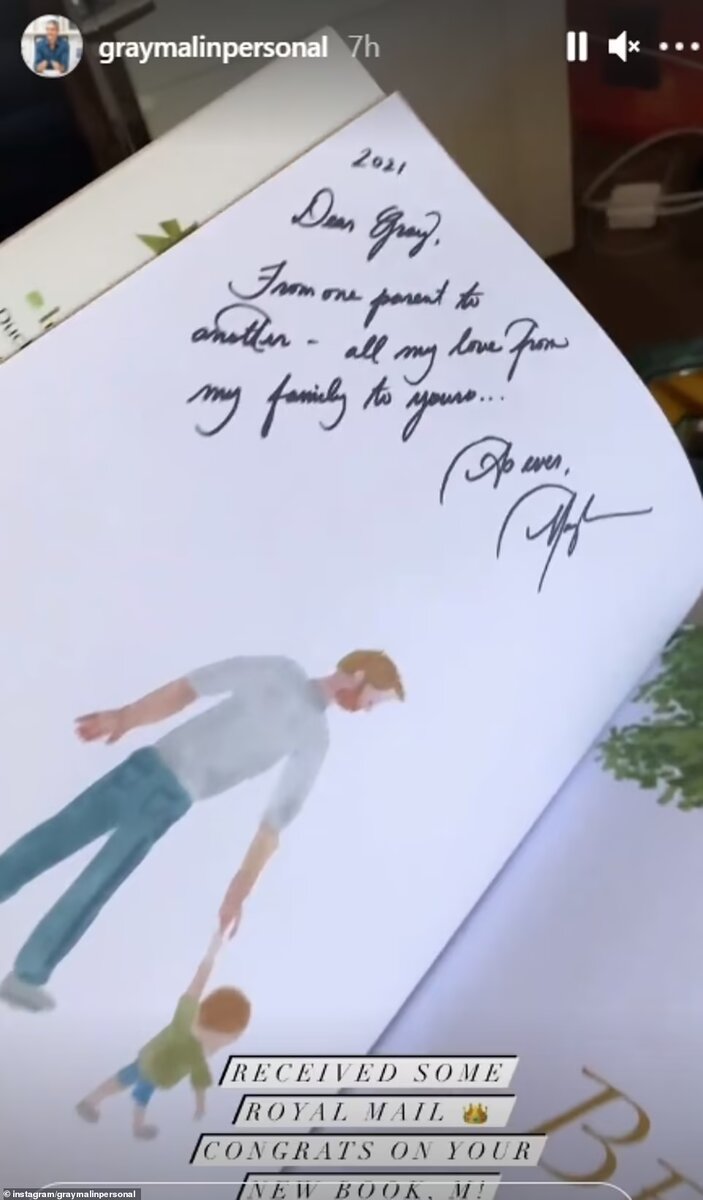 graymalinpersonal 7h
2021
Dear Gray,
From one parent to
another - all my love from
my family to yours...
As ever,
RECEIVED SOME
ROYAL MAIL 👑
CONGRATS ON YOUR
NEW BOOK, M!
© instagram/graymalinpersonal